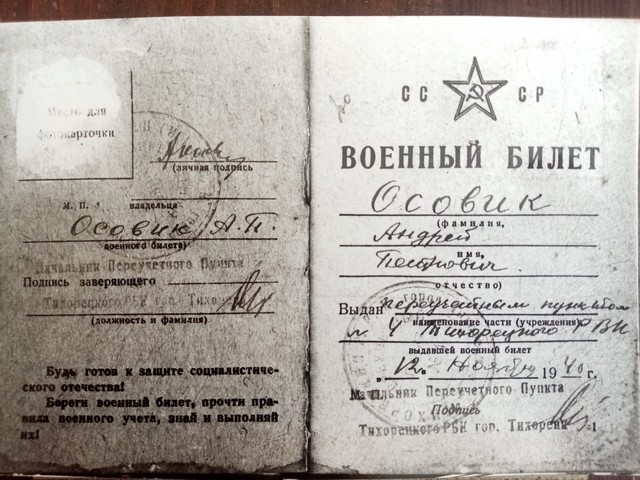 Место для
фотокарточки
(личная подпись
М. П. владельца
Осовик А.П.
военного билета)
Начальник Переучетного Пункта
Подпись заверяющего
Тихорецкого РВК гор. Тихорецк
(должность и фамилия)
Будь готов к защите социалистиче-
ского отечества!
Береги военный билет, прочти пра-
вила военного учета, знай и выполняй
их!
СС СР
ВОЕННЫЙ БИЛЕТ
Осовик
(фамилия,
Андрей
имя,
отчество)
Выдан переучётным пунктом
№ 4 Тихорецкого РВК
наименование части (учреждения),
выдавшей военный билет
„12" ноября 1940 г.
Начальник Переучетного Пункта
Подпись
Тихорецкого РВК гор. Тихорецк